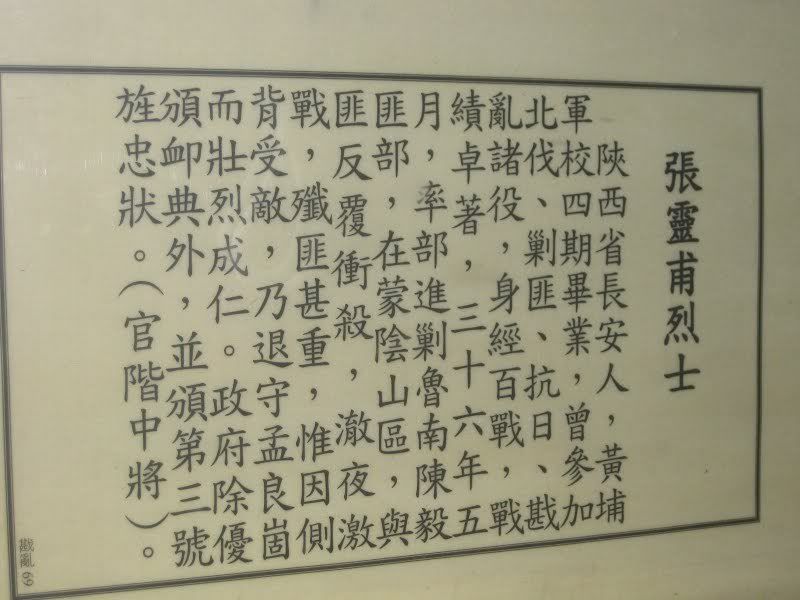 張靈甫烈士
陝西省長安人，黃埔
軍校四期畢業，曾參加
北伐、剿匪、抗日、戡
亂諸役，身經百戰，戰
績卓著，三十六年五
月，率部進剿魯南陳毅
匪部，在蒙陰山區，與
匪反覆衝殺，澈夜激
戰，殲匪甚重，惟因側
背受敵，乃退守孟良崮
而壯烈成仁。政府除優
頒卹典外，並頒第三號
旌忠狀。（官階中將）。
戡亂 69